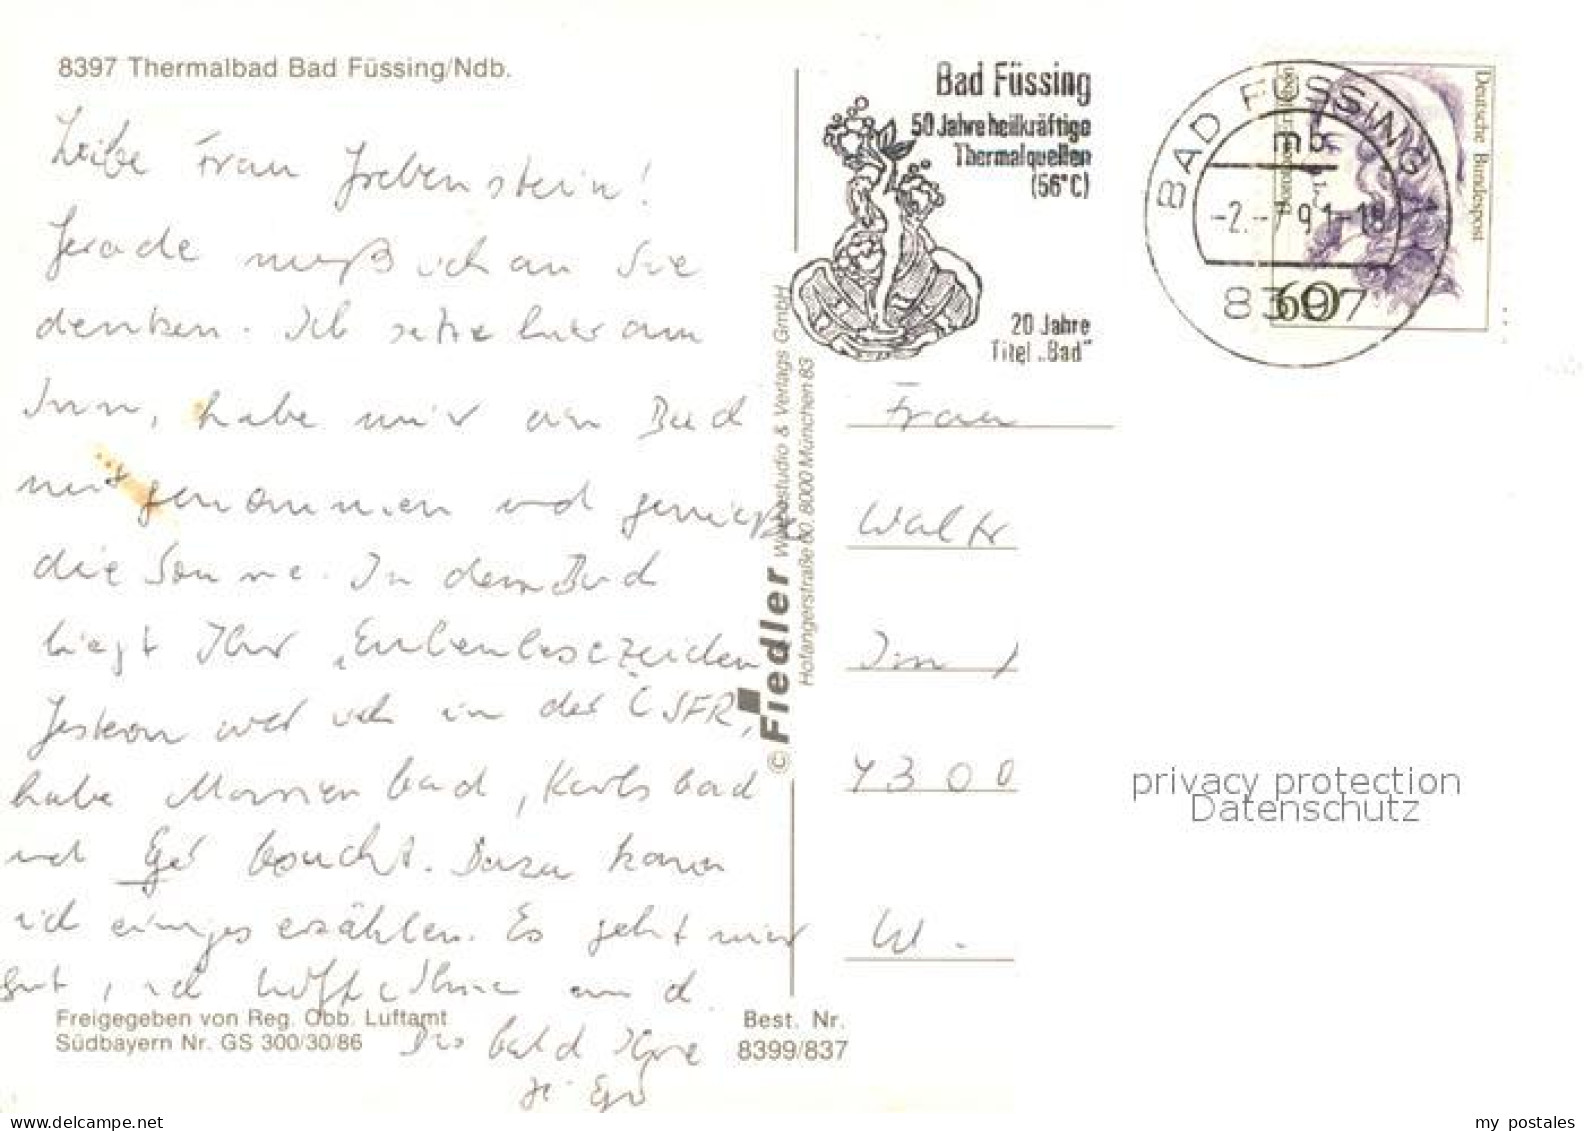 8397 Thermalbad Bad Füssing/Ndb.
Liebe Frau Grebenstein!
Gerade muß ich an Sie
denken. Ich sitze hier am
Inn, habe mir ein Buch
mitgenommen und genieße
die Sonne. In dem Buch
liegt Ihr „Eulenlesezeichen
Gestern war ich in der ČSFR,
habe Marienbad, Karlsbad
und Eger besucht. Dazu kann
ich einiges erzählen. Es geht mir
gut, ich hoffe Ihnen auch
Bis bald Ihre
Freigegeben von Reg. Obb. Luftamt
Südbayern Nr. GS 300/30/86
Best. Nr.
8399/837
© Fiedler Werbestudio & Verlags GmbH
Hofangerstraße 60, 8000 München 83
Bad Füssing
50 Jahre heilkräftige
Thermalquellen
(56°C)
20 Jahre
Titel „Bad"
BAD FÜSSING 1
mb
-2.-7.91-18
8397
Deutsche Bundespost
60
Frau
Waltr
Im
4300
W.
privacy protection
Datenschutz
my postales